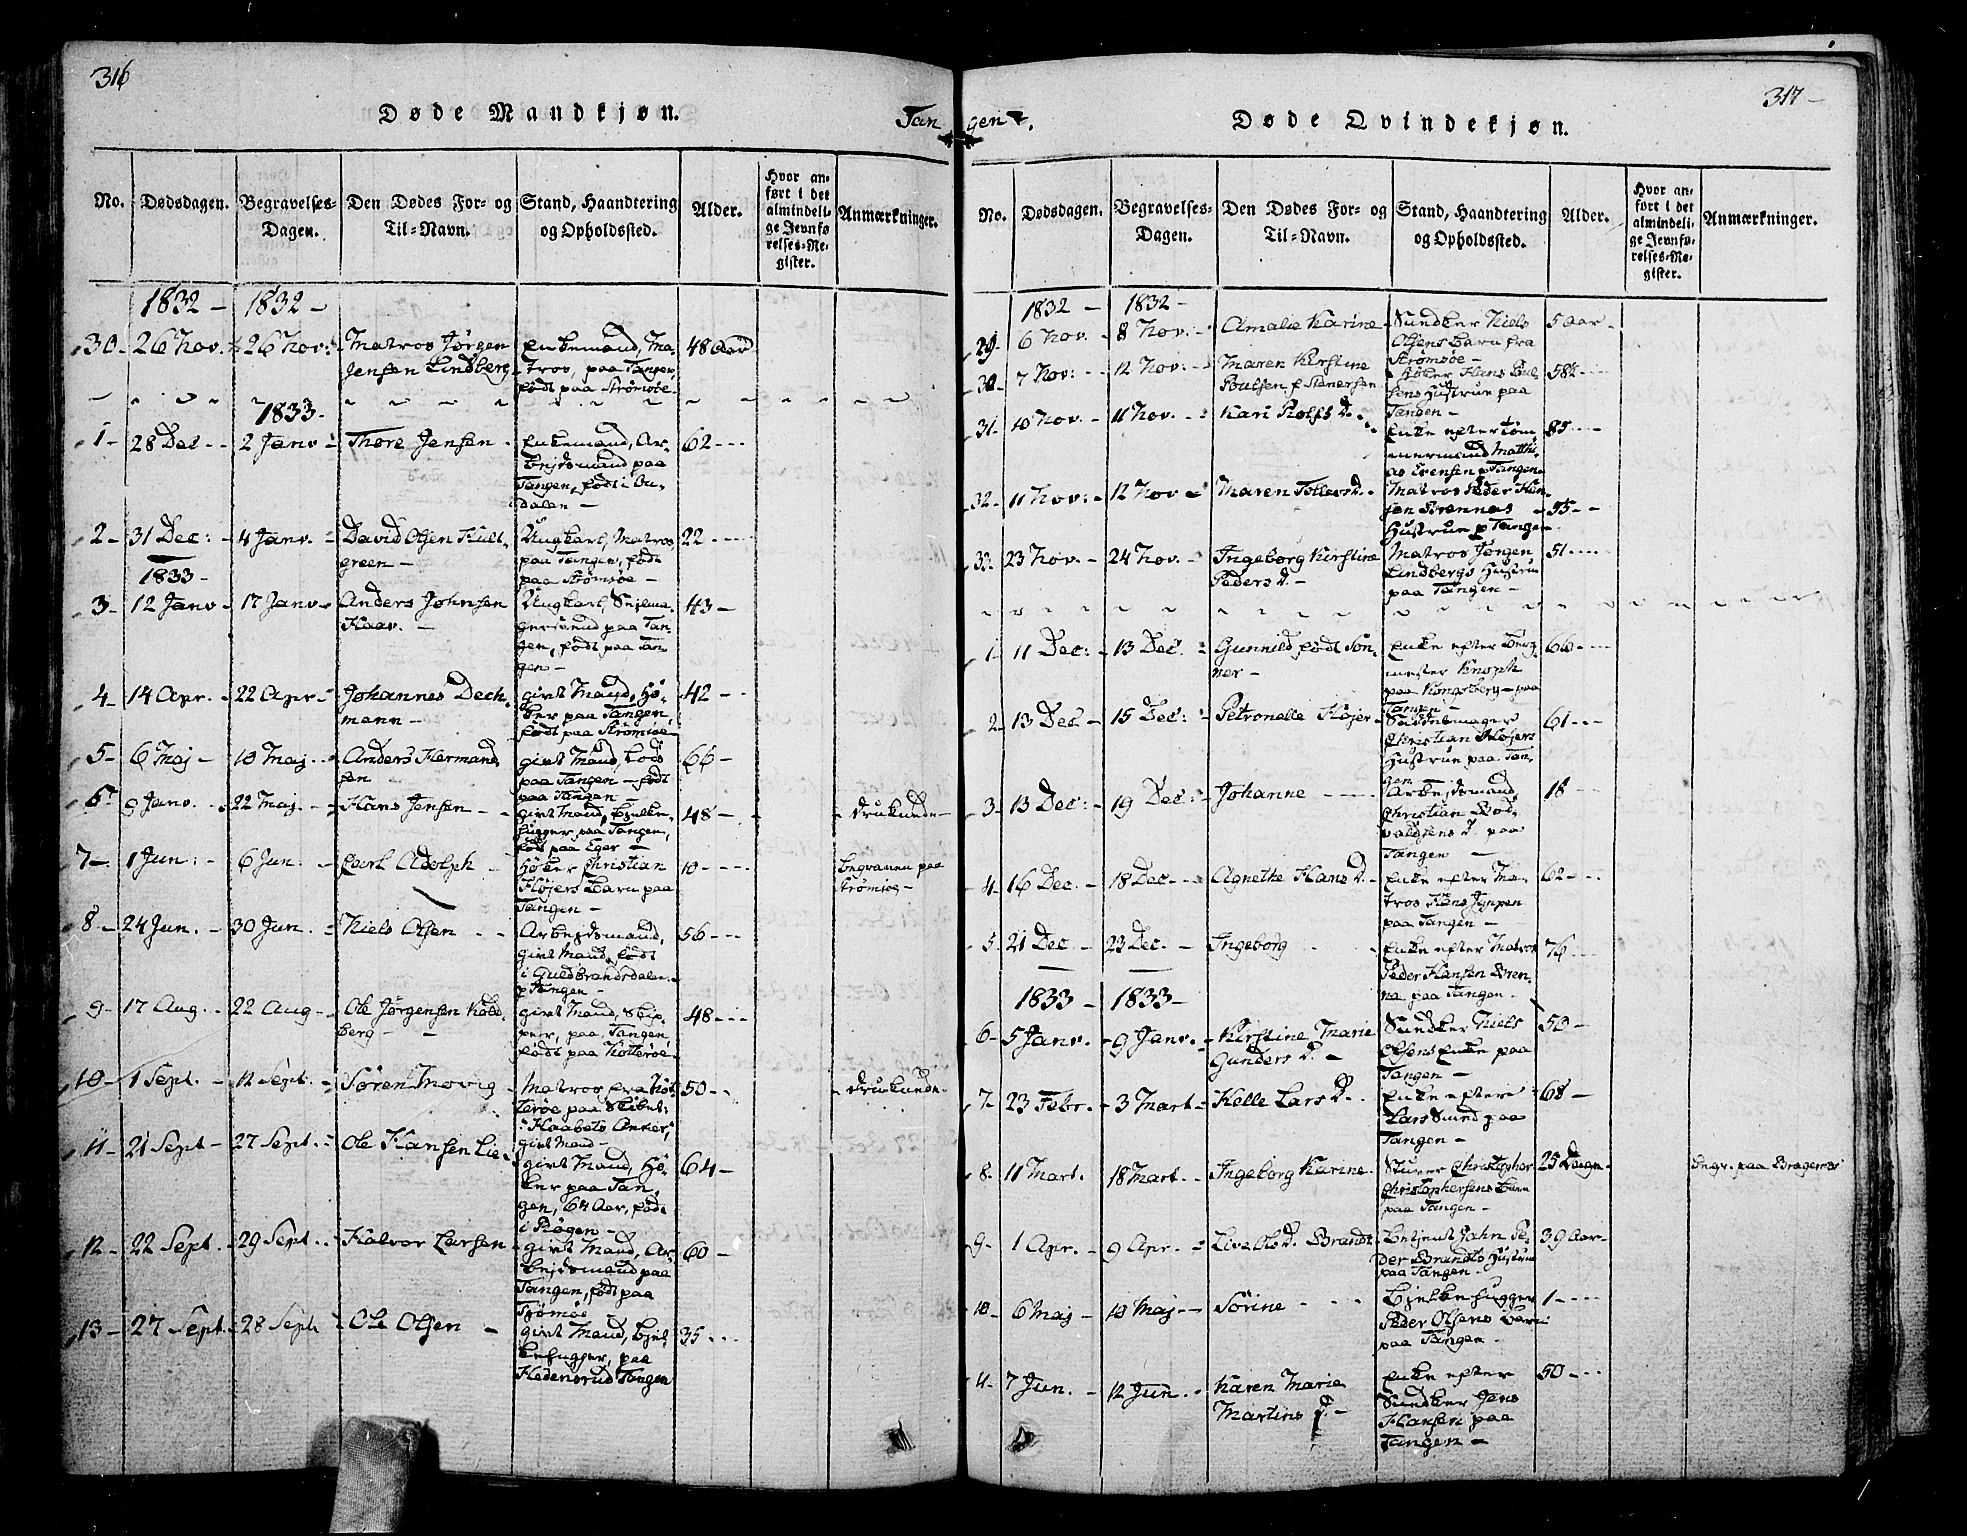 316
Døde Mandkjøn.
Tan
No. Dødsdagen. Begravelses-Dagen. Den Dødes For- og Til-Navn. Stand, Haandtering og Opholdssted. Alder. Hvor anført i det almindelige Jevnførelses-Register. Anmærkninger.
1832 - 1832 -
30 - 26 Nov. 26 Nov: Matros Jørgen
Jensen Lindberg
Enkemand, Ma-
tros, paa Tangen,
født paa Strømsøe
48 Aar
1833 -
1 - 28 Dec - 2 Janv - Thore Jensen
Enkemand, Ar-
bejdsmand paa
Tangen, født i
dalen -
62
2 - 31 Dec: - 4 Janv. - David Olsen Hult-
green -
Ungkarl, Matros
paa Tangen, født
paa Strømsøe -
22
1833 -
3 - 12 Janv - 17 Janv - Anders Johnsen
Haav. -
Ungkarl, Sejlma-
gersvend paa Tan-
gen, født paa Tan-
gen -
43 -
4 - 14 Apr. - 22 Apr - Johannes Dech-
mann -
givt Mand, Hø-
ker paa Tangen,
født paa Strømsøe
42 -
5 - 6 Maj - 10 Maj - Anders Hermand-
sen
givt Mand, Lods
paa Tangen - født
paa Tangen -
66 -
6 9 Janv. - 22 Maj - Hans Jensen -
givt Mand, Bjelke-
hugger paa Tangen,
født paa Eger -
48 -
druknede -
7 - 1 Jun: - 6 Jun: - Carl Adolph -
Høker Christian
Højers Barn paa
Tangen -
10
begraven paa
Strømsøe -
8 - 24 Jun. - 30 Jun. - Niels Olsen - -
Arbejdsmand,
givt Mand, født
i Guldbrandsdalen
p Tangen -
56
9 - 17 Aug. - 22 Aug - Ole Jørgensen Kold-
berg -
givt Mand, Skip-
per, paa Tangen,
født paa Notterøe
48
10 - 1 Sept. - 12 Sept. - Søren
Matros fra Not-
terøe paa Skibet:
"Haabets Anker,"
givt Mand -
50
druknede -
11 - 21 Sept - 27 Sept. - Ole Hansen Lie
givt Mand, Hø-
ker paa Tan-
gen, 64 Aar, født
i Røgen -
64 -
12 - 22 Sept. - 29 Sept. - Halvor Larsen
givt Mand, Ar-
bejdsmand paa
Tangen, født paa
60 -
13 - 27 Sept. - 28 Sept - Ole Olsen -
givt Mand, Bjel-
kehugger, paa
Hedensrud Tangen
35
317 -
Døde Qvindekjøn.
gen.
No. Dødsdagen. Begravelses-Dagen. Den Dødes For- og Til-Navn. Stand, Haandtering og Opholdssted. Alder. Hvor anført i det almindelige Jevnførelses-Register. Anmærkninger.
1832 - 1832 -
29 - 6 Nov. - 8 Nov: Amalie Karine
Sundker Niels
Olsens Barn fra
Strømsøe -
5 Aar -
30 - 7 Nov: - 12 Nov: - Maren Kirstine
Poulsen f.
Høker Hans Poul-
sens Hustrue paa
Tangen -
58½
31 - 10 Nov. - 11 Nov. - Kari Rolfs D.
Enke efter Tøm-
mermand Matthi-
as Evensen p Tangen
85
32 - 11 Nov: - 12 Nov - Maren Tollevs D.
Matros Peder Han-
sen Brennas
Hustrue p Tangen
55 -
33 - 23 Nov. - 24 Nov. - Ingeborg Kirstine
Peders D. -
Matros Jørgen
Lindbergs Hustru
paa Tangen -
51
1 - 11 Dec: - 13 Dec: - Gunnild født Søn-
ner -
Enke efter Berg-
mester Knoph
paa Kongsberg - paa
Tangen -
66
2 - 13 Dec - 15 Dec: - Petronelle Højer
Saddelmager
Christian Højers
Hustrue paa Tan-
gen
61
3 - 13 Dec: - 19 Dec: - Johanne -
Arbejdsmand,
Christian Bod-
valdsens D. paa
Tangen -
18 -
4 - 16 Dec: - 18 Dec - Agnethe Hans D. -
Enke efter Ma-
tros Hans
paa Tangen -
62
5. 21 Dec - 23 Dec. - Ingeborg
Enke efter Matros
Peder Hansen Bren-
na, paa Tangen -
76
1833 - 1833 -
6 - 5 Janv. - 9 Janv. - Kirstine Marie
Gunders D. -
Sundker Niels
Olsens Enke paa
Tangen -
50 -
7 - 23 Febr. - 3 Mart - Helle Lars D.
Enke efter
Lars Sund paa
Tangen -
68 -
8 - 11 Mart. 18 Mart. - Ingeborg Karine
Stuver Christopher
Christophersens Barn
paa Tangen -
25 Dage
Begr. paa Bragernæs
9 - 1 Apr. - 9 Apr. - Live Ols D. Brandt
Betjent John Pe-
der Brandts Hustrue
paa Tangen -
39 Aar -
10 - 6 Maj - 10 Maj - Sørine -
Bjelkehugger
Peder Olsens Barn
paa Tangen -
1 -
11 - 7 Jun. - 12 Jun. - Karen Marie
Martins D. -
Enke efter
Sundker Jens
Hansen paa
Tangen -
50